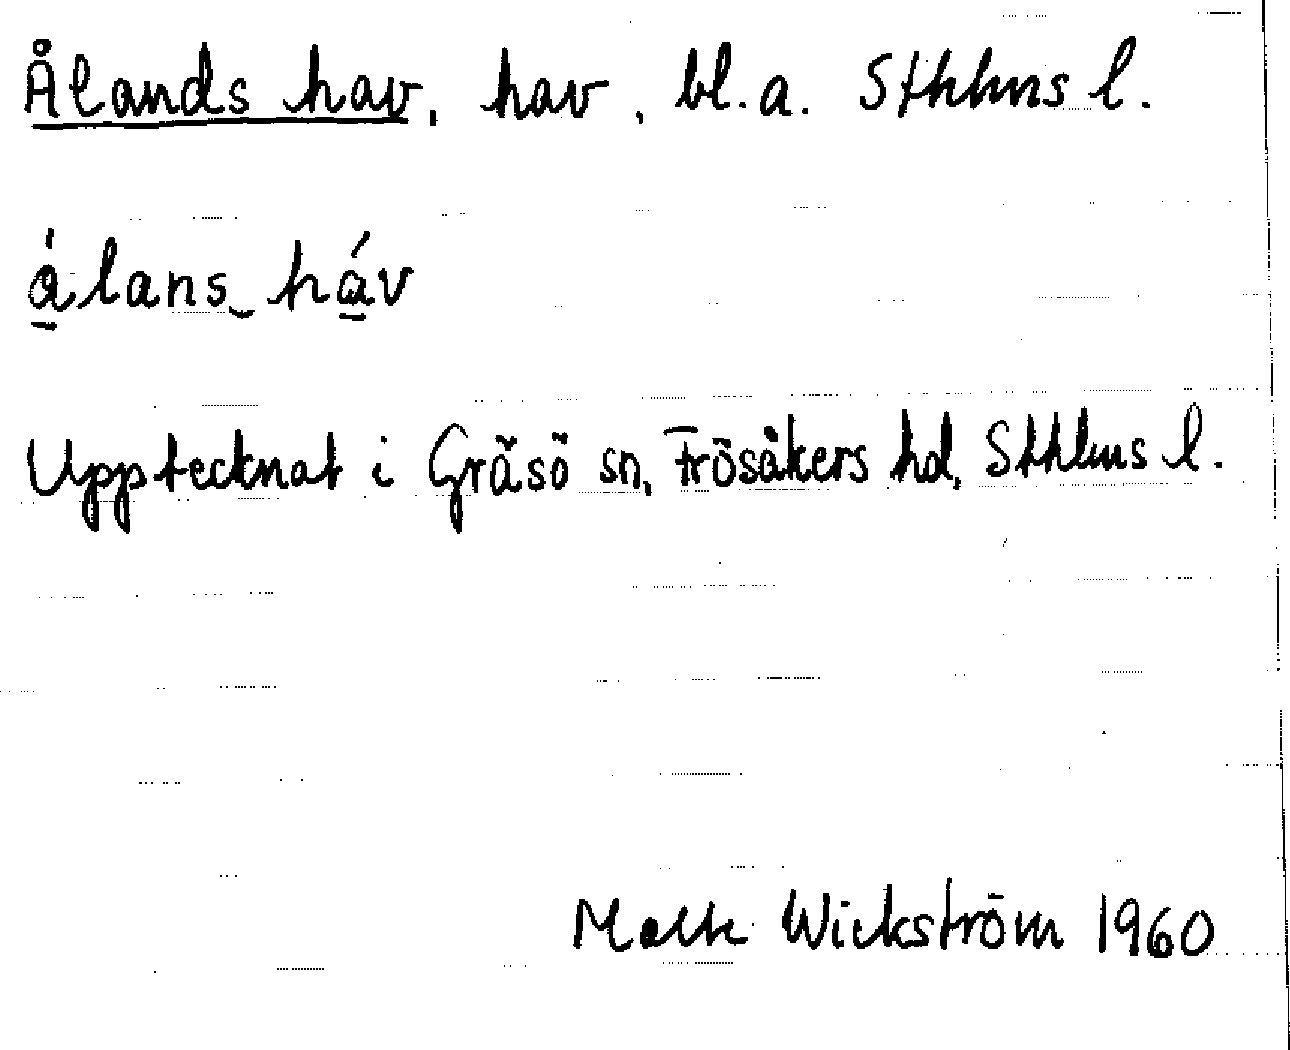 Ålands hav, hav, bl.a. Sthlms l.
ålans‿háv
Upptecknat i Gräsö sn, Frösåkers hd, Sthlms l.
Wickström 1960